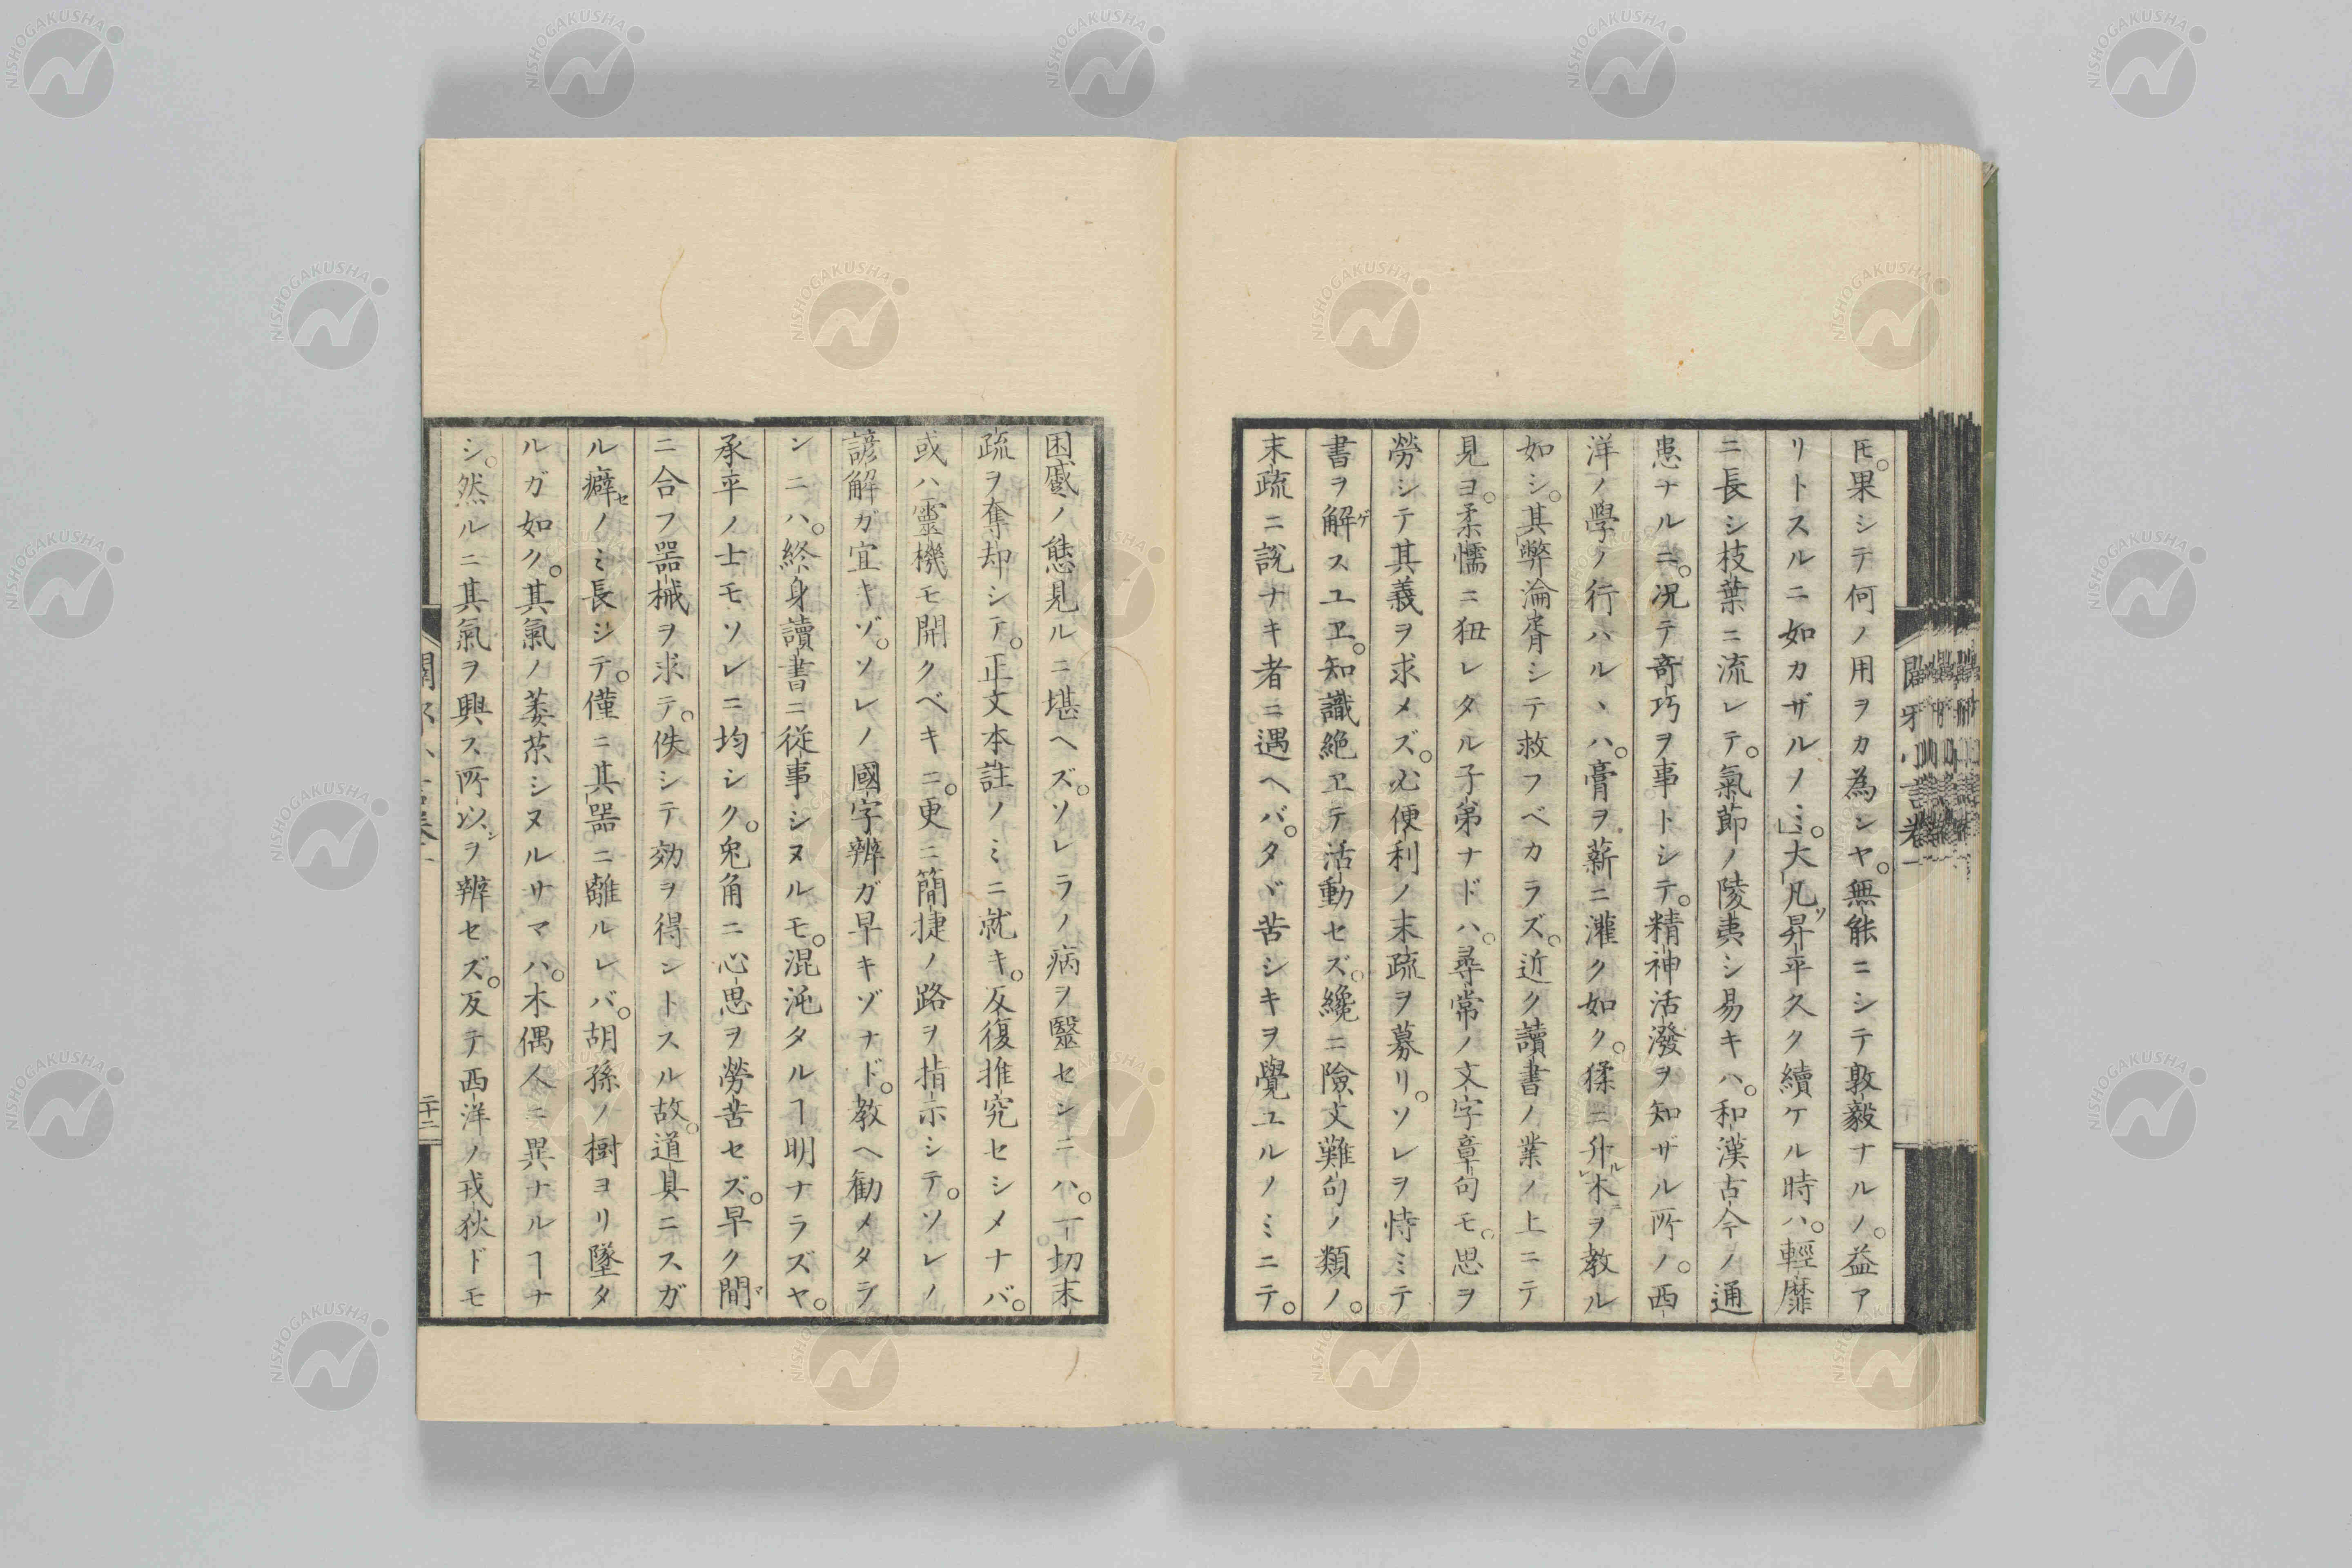 㪳。果シテ何ノ用ヲカ為シヤ。無能ニシテ敦毅ナルノ。益ア
リトスルニ如カザルノミ。」大凡ソ昇平久ク續ケル時ハ。輕靡
ニ長シ枝葉ニ流レテ。氣節ノ陵夷シ易キハ。和漢古今ノ通
患ナルニ。况テ奇巧ヲ事トシテ。精神活潑ヲ知ザル所ノ。西
洋ノ學ノ行ハルヽハ。膏ヲ薪ニ灌ク如ク。猱ニ升ルレ木ヲ教ル
如シ。其弊淪胥シテ救フベカラズ。近ク讀書ノ業ノ上ニテ
見ヨ。柔懦ニ狃レタル子弟ナドハ。尋常ノ文字章句モ。思ヲ
勞シテ其義ヲ求メズ。必便利ノ末疏ヲ募リ。ソレヲ恃ミテ
書ヲ解ゲスユヱ。知識絶ヱテ活動セズ。纔ニ險文難句ノ類ノ。
末疏ニ說ナキ者ニ遇ヘバ。タヾ苦シキヲ覺ユルノミニテ。
困蹙ノ態見ルニ堪ヘズ。ソレラノ病ヲ醫センニハ。一切末
疏ヲ奪却シテ。正文本註ノミニ就キ。反復推究セシメナバ。
或ハ靈機モ開クベキニ。更ニ簡捷ノ路ヲ指示シテ。ソレノ
諺解ガ宜キゾ。ソレノ國字辨ガ早キゾナド。教ヘ勧メタラ
ンニハ。終身讀書ニ從事シヌルモ。混沌タルヿ明ナラズヤ。
承平ノ士モソレニ均シク。兔角ニ心思ヲ勞苦セズ。早ク間マ
ニ合フ噐械ヲ求テ。佚シテ効ヲ得ントスル故。道具ニスガ
ル癖セノミ長シテ。僅ニ其噐ニ離ルレバ。胡孫ノ樹ヨリ墜タ
ルガ如ク。其氣ノ萎苶シヌルサマハ。木偶人ニ異ナルヿナ
シ。然ルニ其氣ヲ興ス所以シヲ辨セズ。反テ西洋ノ戎狄ドモ
二十二